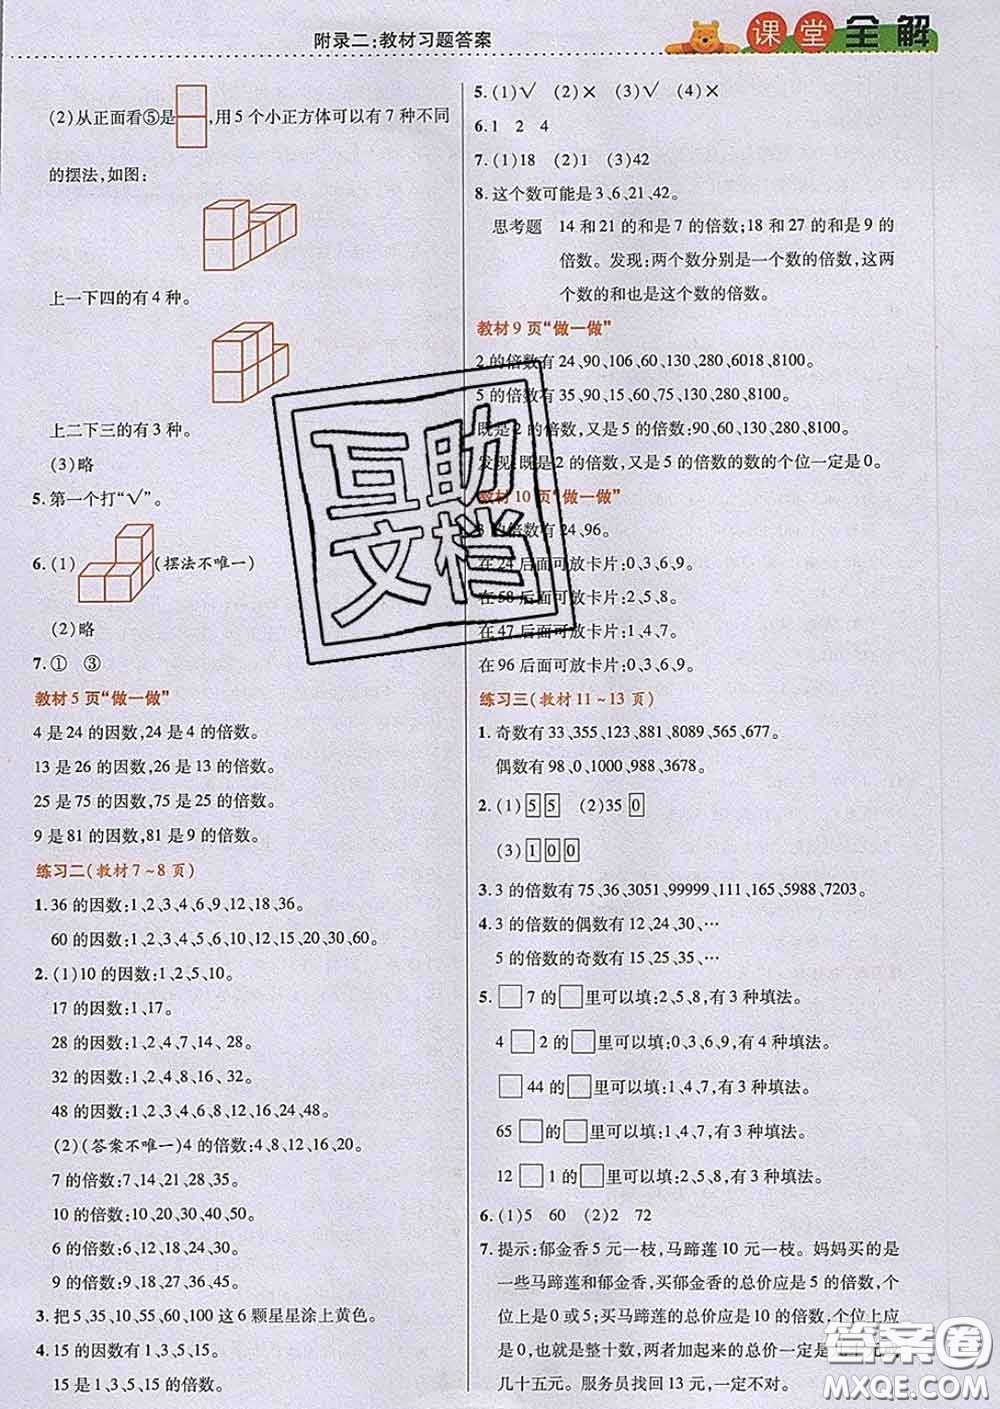 附录二:教材习题答案
课堂全解
(2)从正面看⑤是,用5个小正方体可以有7种不同
的摆法,如图:
上一下四的有4种。
上二下三的有3种。
(3)略
5.第一个打“√”。
6.(1)(摆法不唯一)
(2)略
7.① ③
教材5页“做一做”
4是24的因数,24是4的倍数。
13是26的因数,26是13的倍数。
25是75的因数,75是25的倍数。
9是81的因数,81是9的倍数。
练习二(教材7~8页)
1.36的因数:1、2、3、4、6、9、12、18、36。
60的因数:1、2、3、4、5、6、10、12、15、20、30、60。
2.(1)10的因数:1、2、5、10。
17的因数:1、17。
28的因数:1、2、4、7、14、28。
32的因数:1、2、4、8、16、32。
48的因数:1、2、3、4、6、8、12、16、24、48。
(2)(答案不唯一)4的倍数:4、8、12、16、20。
7的倍数:7、14、21、28、35。
10的倍数:10、20、30、40、50。
6的倍数:6、12、18、24、30。
9的倍数:9、18、27、36、45。
3.把5、35、10、55、60、100这6颗星星涂上黄色。
4.15的因数有1、3、5、15。
15是1、3、5、15的倍数。
5.(1)√ (2)× (3)√ (4)×
6.1 2 4
7.(1)18 (2)1 (3)42
8.这个数可能是3、6、21、42。
思考题 14和21的和是7的倍数;18和27的和是9的
倍数。发现:两个数分别是一个数的倍数,这两
个数的和也是这个数的倍数。
教材9页“做一做”
2的倍数有24、90、106、60、130、280、6018、8100。
5的倍数有35、90、15、60、75、130、280、8100。
既是2的倍数,又是5的倍数:90、60、130、280、8100。
发现:既是2的倍数,又是5的倍数的数的个位一定是0。
教材10页“做一做”
3的倍数有24、96。
在24后面可放卡片:0、3、6、9。
在58后面可放卡片:2、5、8。
在47后面可放卡片:1、4、7。
在96后面可放卡片:0、3、6、9。
练习三(教材11~13页)
1.奇数有33、355、123、881、8089、565、677。
偶数有98、0、1000、988、3678。
2.(1)55 (2)35 0
(3)100
3.3的倍数有75、36、3051、99999、111、165、5988、7203。
4.3的倍数的偶数有12、24、30、…
5的倍数的奇数有15、25、35、…
5.□7的□里可以填:2、5、8,有3种填法。
4□2的□里可以填:0、3、6、9,有4种填法。
□44的□里可以填:1、4、7,有3种填法。
65□的□里可以填:1、4、7,有3种填法。
12□1的□里可以填:2、5、8,有3种填法。
6.(1)5 60 (2)2 72
7.提示:郁金香5元一枝,马蹄莲10元一枝。妈妈买的是
一些马蹄莲和郁金香,买郁金香的总价应是5的倍数,个
位上是0或5;买马蹄莲的总价应是10的倍数,个位上应
是0,也就是整十数,两者加起来的总价应是几十元或
几十五元。服务员找回13元,一定不对。
互助文档
答案圈
MXQE.COM